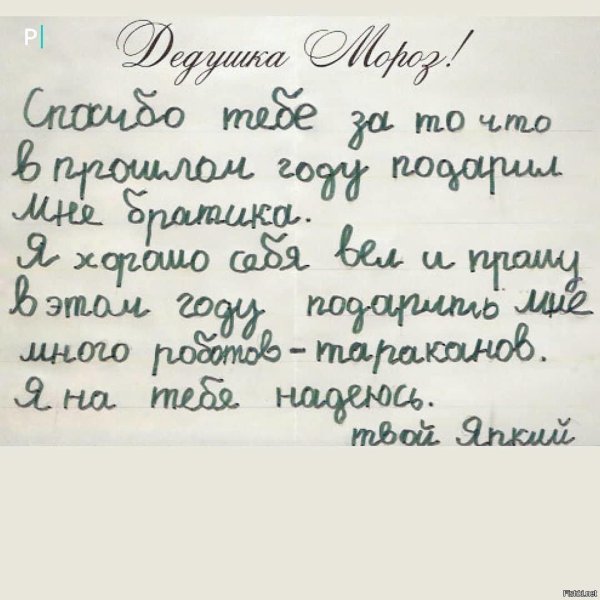 P|
Дедушка Мороз!
Спасибо тебе за то что
в прошлом году подарил
мне братика.
Я хорошо себя вел и прашу
в этом году подарить мне
много роботов-тараканов.
Я на тебя надеюсь.
твой
Fishki.net